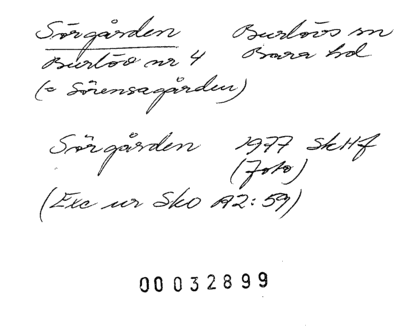 Sörgården Burlövs sn
Burlöv nr 4 Bara hd
(= Sörensagården)
Sörgården 1977 SkHf
(foto)
(Exc ur Sko A2:59)
00032899